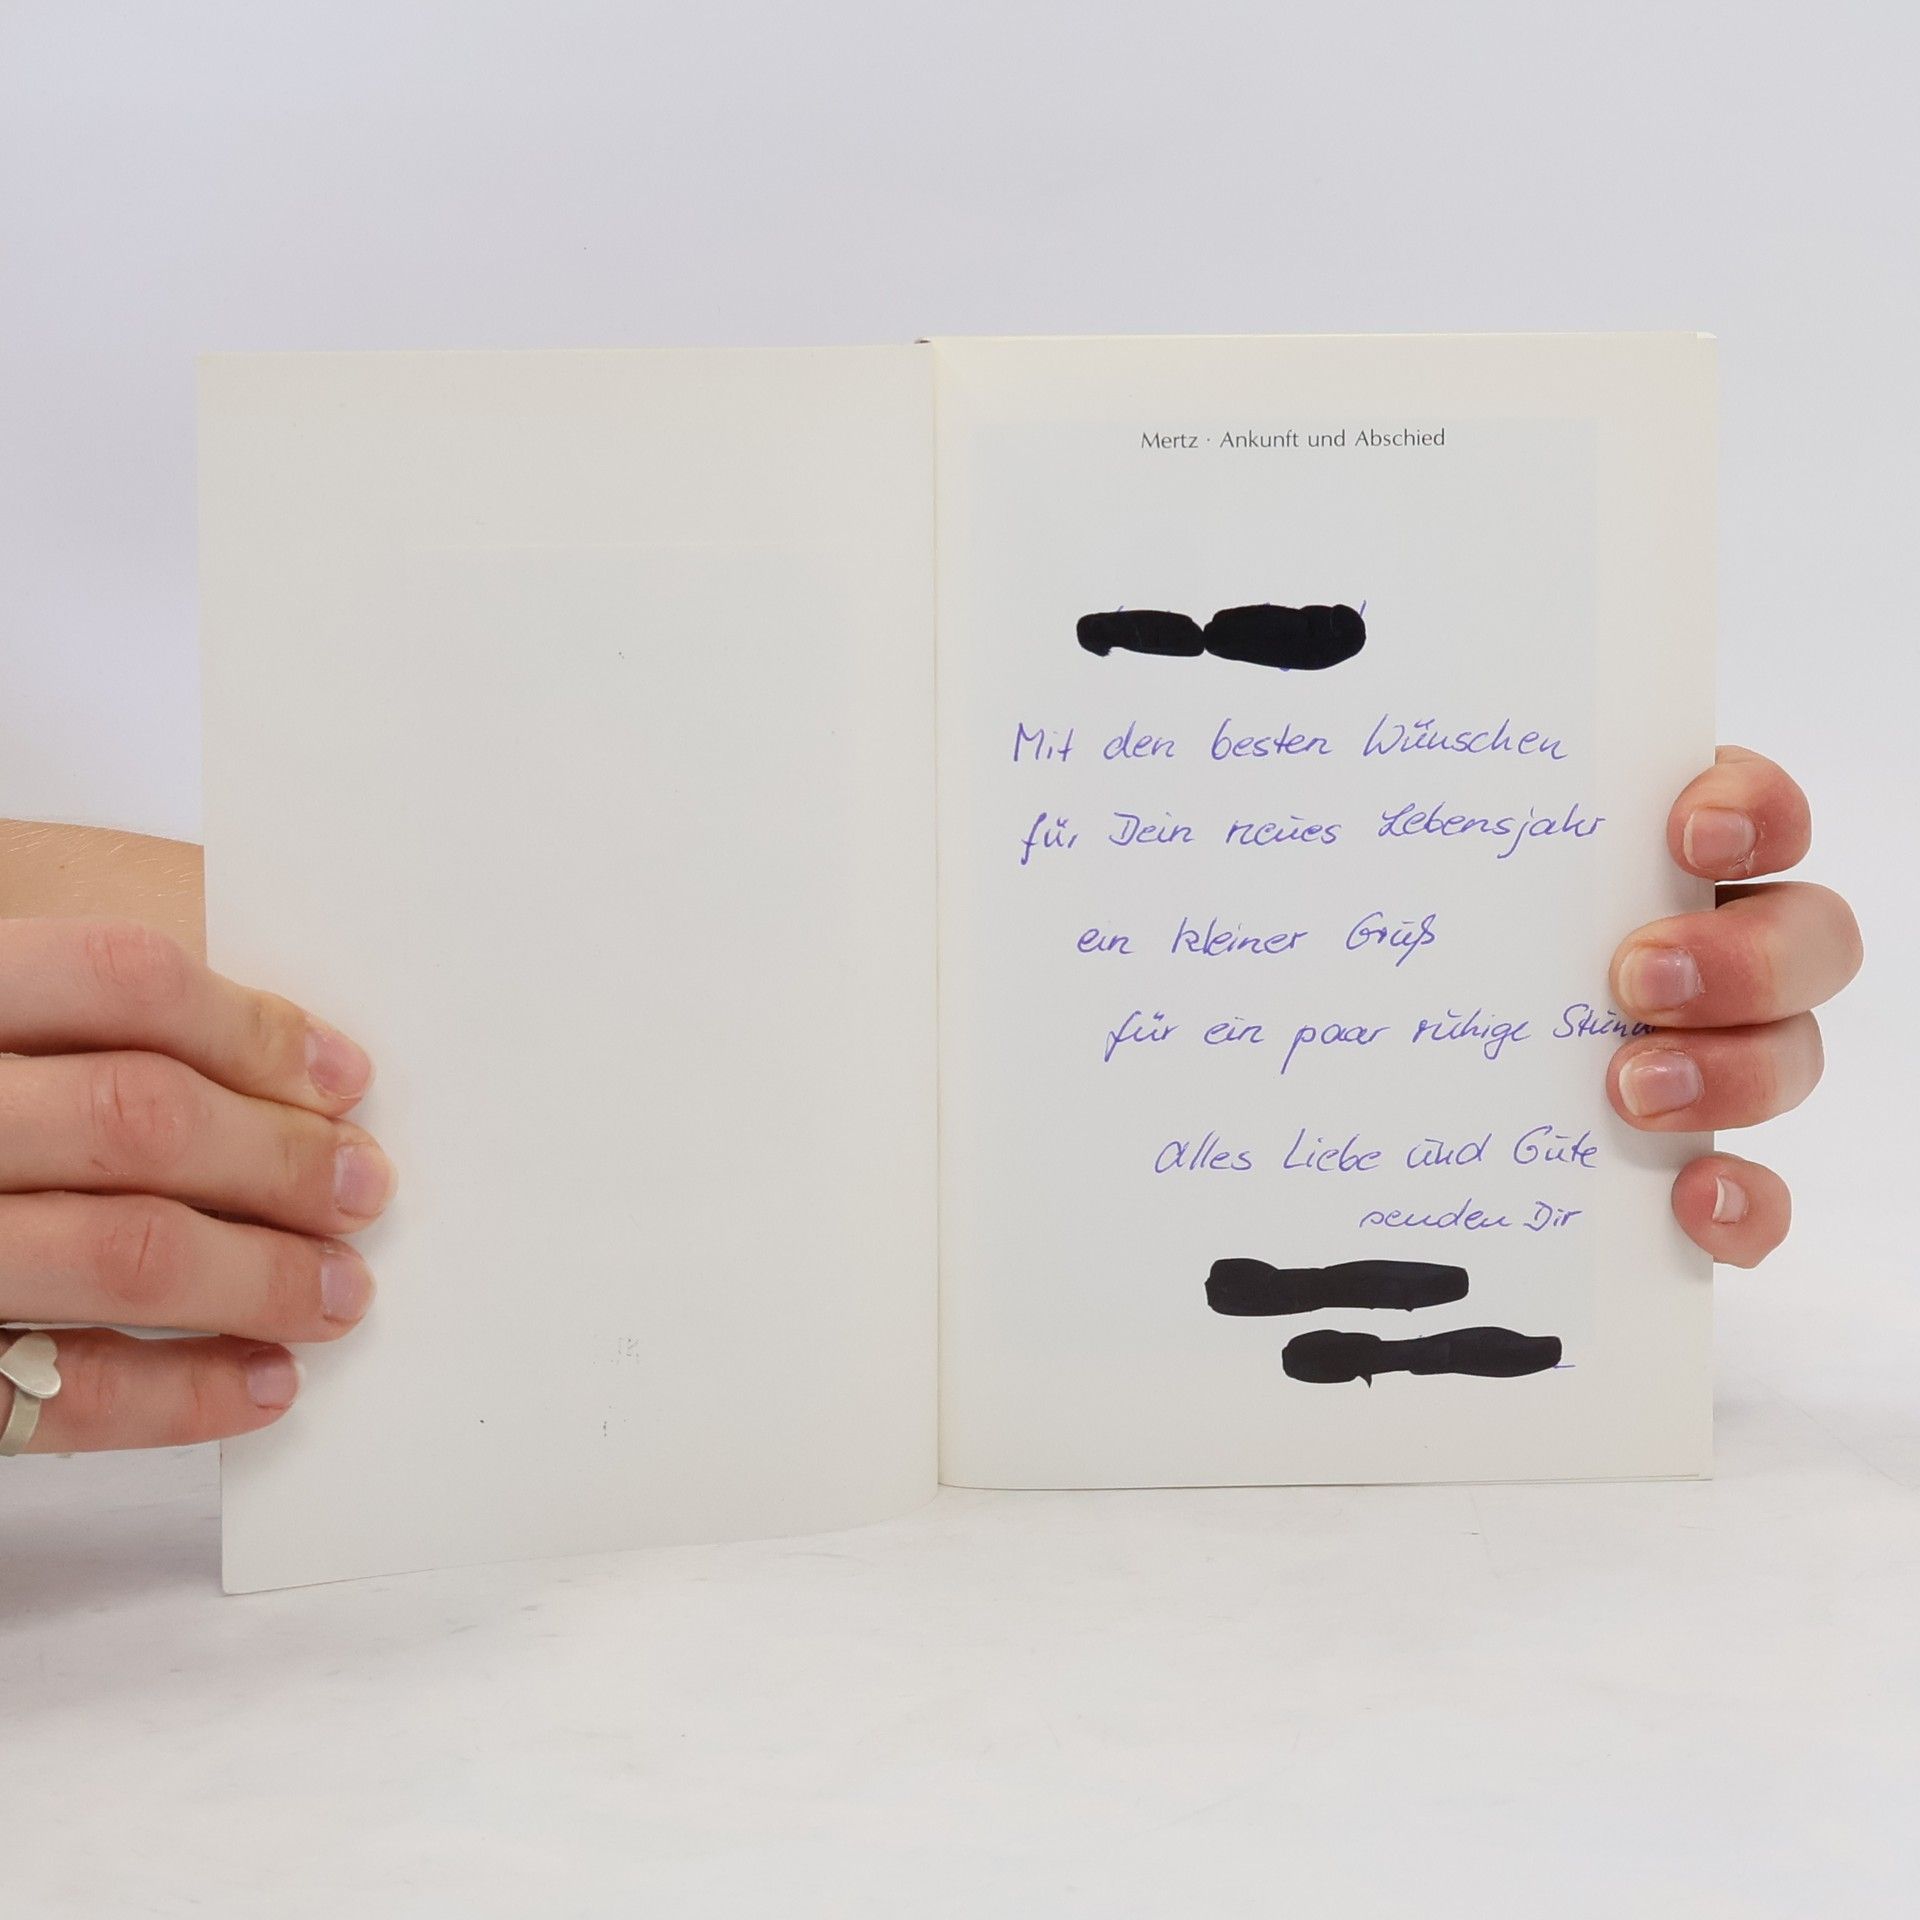 Mertz · Ankunft und Abschied
Mit den besten Wünschen
für Dein neues Lebensjahr
ein kleiner Gruß
für ein paar ruhige
Alles Liebe und Gute
senden Dir